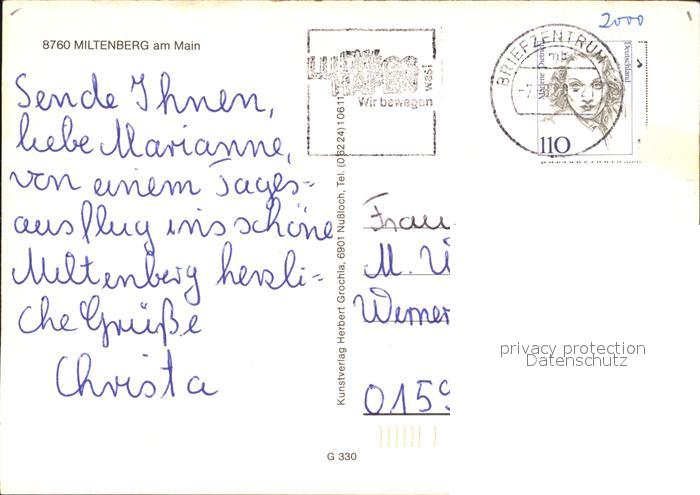 2000
8760 MILTENBERG am Main
Sende Ihnen,
liebe Marianne,
von einem Tages-
ausflug ins schöne
Miltenberg herzli-
che Grüße
Christa
LUDWIGS
HAFEN
Wir bewegen was!
BRIEFZENTRUM
Marlene Dietrich
Deutschland
110
Kunstverlag Herbert Grochla, 6901 Nußloch, Tel. (06224) 10611
Frau
M.
Werner
0159
privacy protection
Datenschutz
G 330